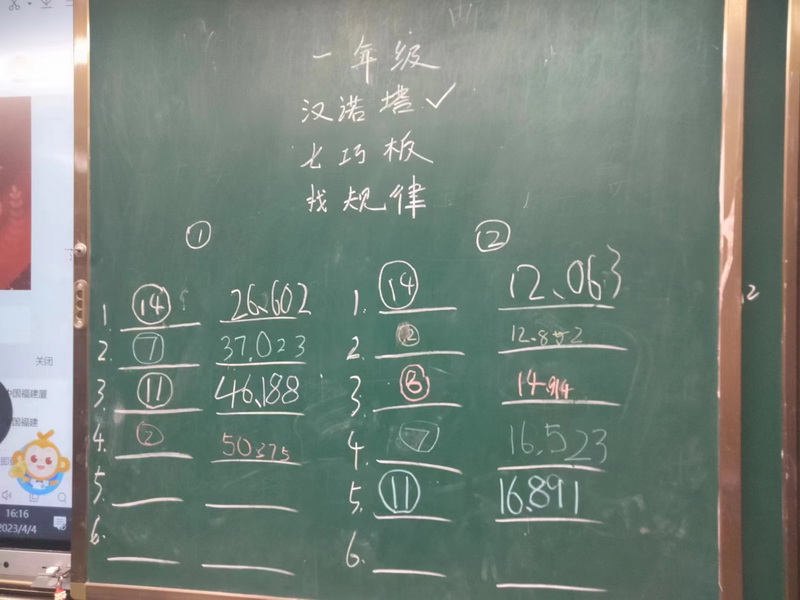 一年级
汉诺塔✓
七巧板
找规律
①
1. ⑭ 26.602
2. ⑦ 37.023
3. ⑪ 46.188
4. ② 50.375
5.
6.
②
1. ⑭ 12.063
2. ② 12.852
3. 14.914
4. ⑦ 16.523
5. ⑪ 16.891
6.
关闭
中国福建
16:16
2023/4/4